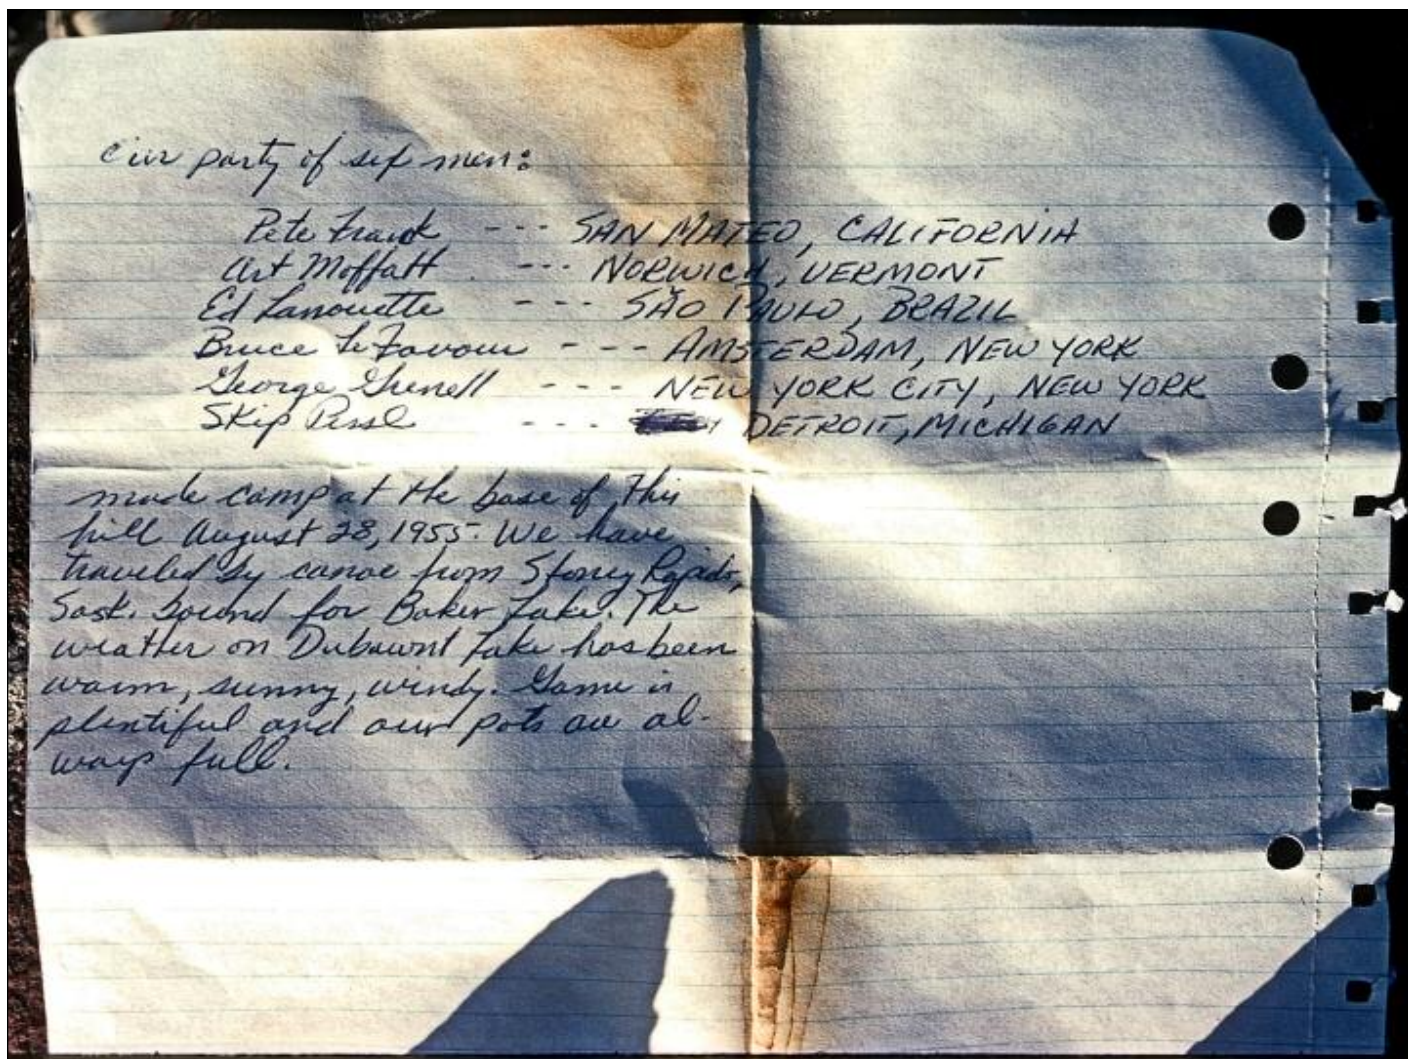 Our party of six men:
Pete Franck --- SAN MATEO, CALIFORNIA
Art Moffatt --- NORWICH, VERMONT
Ed Lanouette --- SÃO PAULO, BRAZIL
Bruce LeFavour --- AMSTERDAM, NEW YORK
George Grinell --- NEW YORK CITY, NEW YORK
Skip Pessl --- DETROIT, MICHIGAN
made camp at the base of this
hill August 28, 1955. We have
traveled by canoe from Stoney Rapids,
Sask. bound for Baker Lake. The
weather on Dubawnt Lake has been
warm, sunny, windy. Game is
plentiful and our pots are al-
ways full.